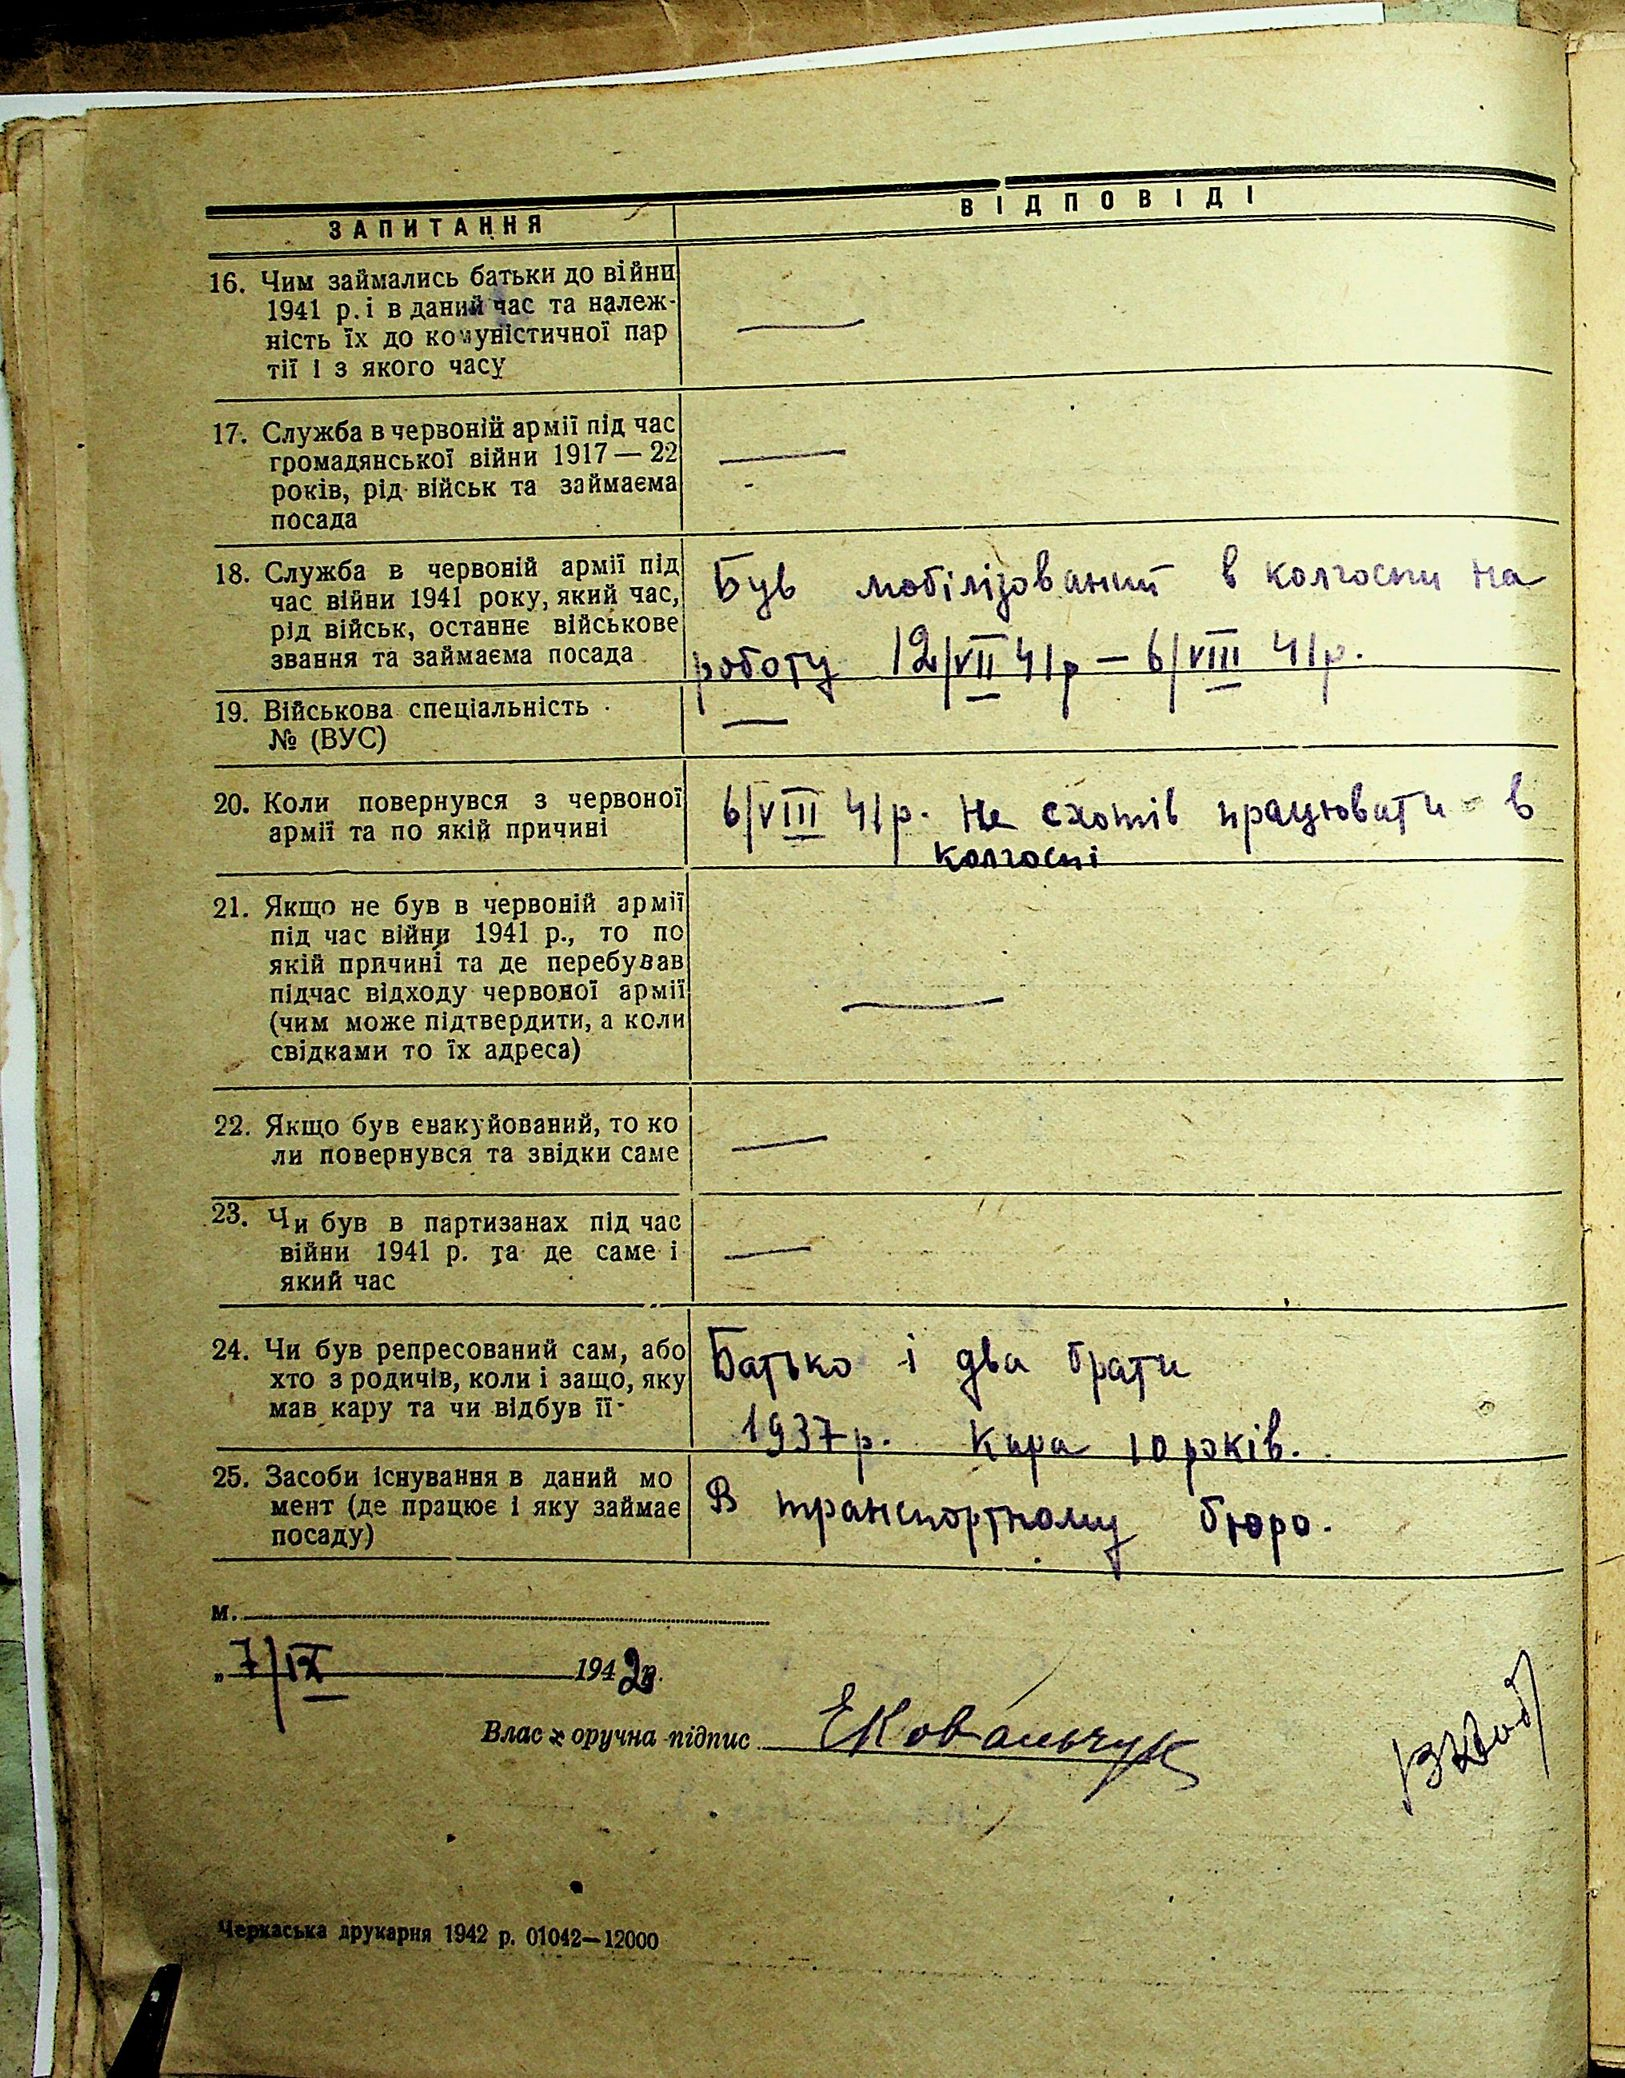 ЗАПИТАННЯ
ВІДПОВІДІ
16. Чим займались батьки до війни
1941 р. і в даний час та належ-
ність їх до комуністичної пар
тії і з якого часу
—
17. Служба в червоній армії під час
громадянської війни 1917 — 22
років, рід військ та займаєма
посада
—
18. Служба в червоній армії під
час війни 1941 року, який час,
рід військ, останнє військове
звання та займаєма посада
Був мобілізований в колгоспи на
роботу 12/VII 41р — 6/VIII 41р.
19. Військова спеціальність
№ (ВУС)
—
20. Коли повернувся з червоної
армії та по якій причині
6/VIII 41р. Не схотів працювати в
колгоспі
21. Якщо не був в червоній армії
під час війни 1941 р., то по
якій причині та де перебував
підчас відходу червоної армії
(чим може підтвердити, а коли
свідками то їх адреса)
—
22. Якщо був евакуйований, то ко
ли повернувся та звідки саме
—
23. Чи був в партизанах під час
війни 1941 р. та де саме і
який час
—
24. Чи був репресований сам, або
хто з родичів, коли і защо, яку
мав кару та чи відбув її
Батько і два брати
1937р. Кара 10 років.
25. Засоби існування в даний мо
мент (де працює і яку займає
посаду)
В транспортному бюро.
м.
„ 7/IX 1942р.
Власноручна підпис ЕКовальчук
Черкаська друкарня 1942 р. 01042—12000